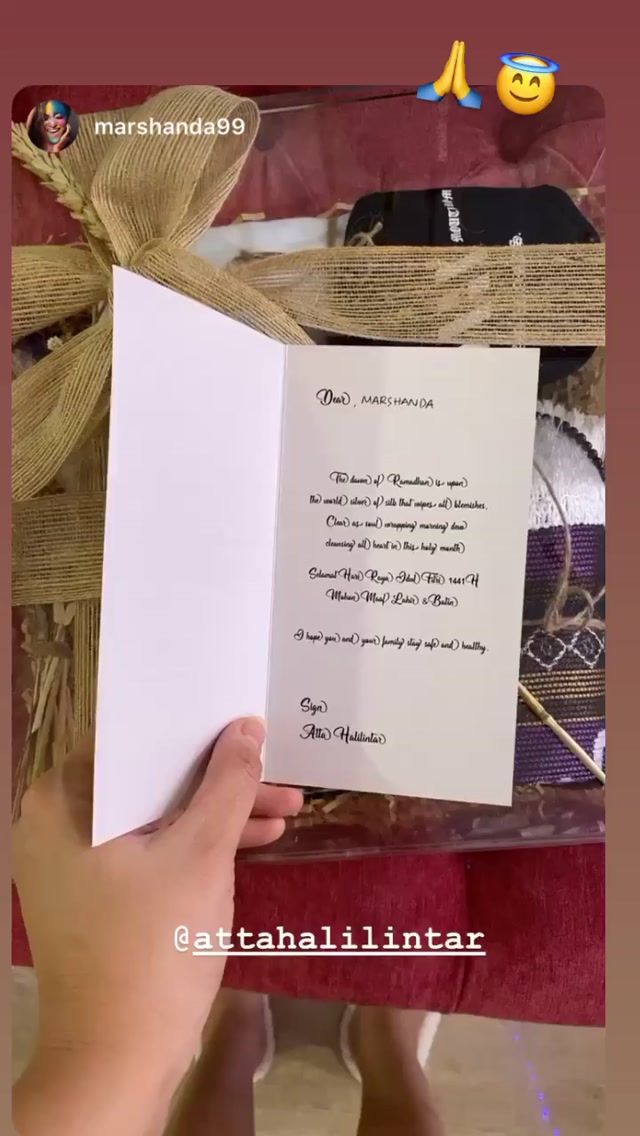 marshanda99
Dear, MARSHANDA
The dawn of Ramadhan is upon
the world silver of silk that wipes all blemishes,
Clear as soul wrapping morning dew
cleansing all heart in this holy month
Selamat Hari Raya Idul Fitri 1441 H
Mohon Maaf Lahir & Batin
I hope you and your family stay safe and healthy.
Sign
Atta Halilintar
@attahalilintar